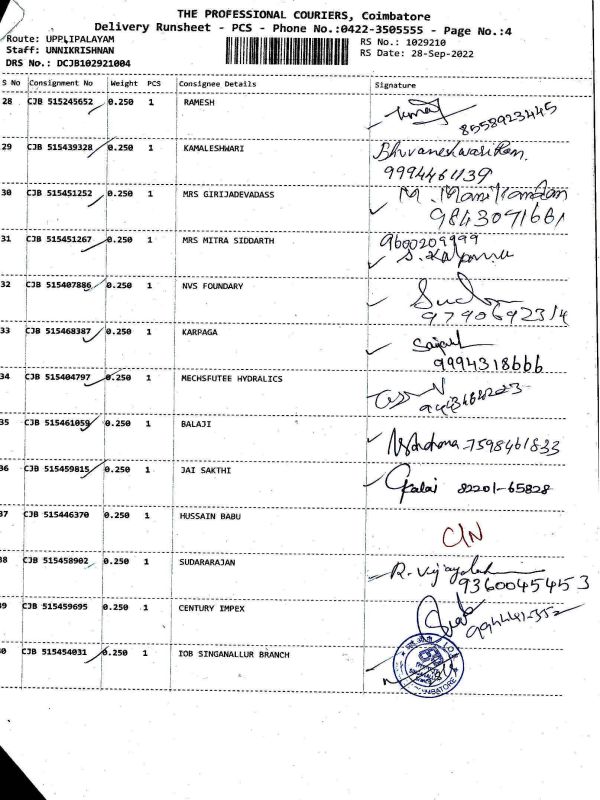 THE PROFESSIONAL COURIERS, Coimbatore
Delivery Runsheet - PCS - Phone No.:0422-3505555 - Page No.:4
Route: UPPLIPALAYAM RS No.: 1029210
Staff: UNNIKRISHNAN RS Date: 28-Sep-2022
DRS No.: DCJB102921004
S No Consignment No Weight PCS Consignee Details Signature
28 CJB 515245652 0.250 1 RAMESH
8558923445
29 CJB 515439328 0.250 1 KAMALESHWARI
9994461139
30 CJB 515451252 0.250 1 MRS GIRIJADEVADASS M. Manikandan
9843091661
31 CJB 515451267 0.250 1 MRS MITRA SIDDARTH 9600209999
S. Kalpana
32 CJB 515407886 0.250 1 NVS FOUNDARY
9790692314
33 CJB 515468387 0.250 1 KARPAGA
9994318666
34 CJB 515404797 0.250 1 MECHSFUTEE HYDRALICS
35 CJB 515461059 0.250 1 BALAJI 7598461833
36 CJB 515459815 0.250 1 JAI SAKTHI Kalai 82201-65828
37 CJB 515446370 0.250 1 HUSSAIN BABU C/N
38 CJB 515458902 0.250 1 SUDARARAJAN R. Vijayalakshmi
9360045453
39 CJB 515459695 0.250 1 CENTURY IMPEX
40 CJB 515454031 0.250 1 IOB SINGANALLUR BRANCH